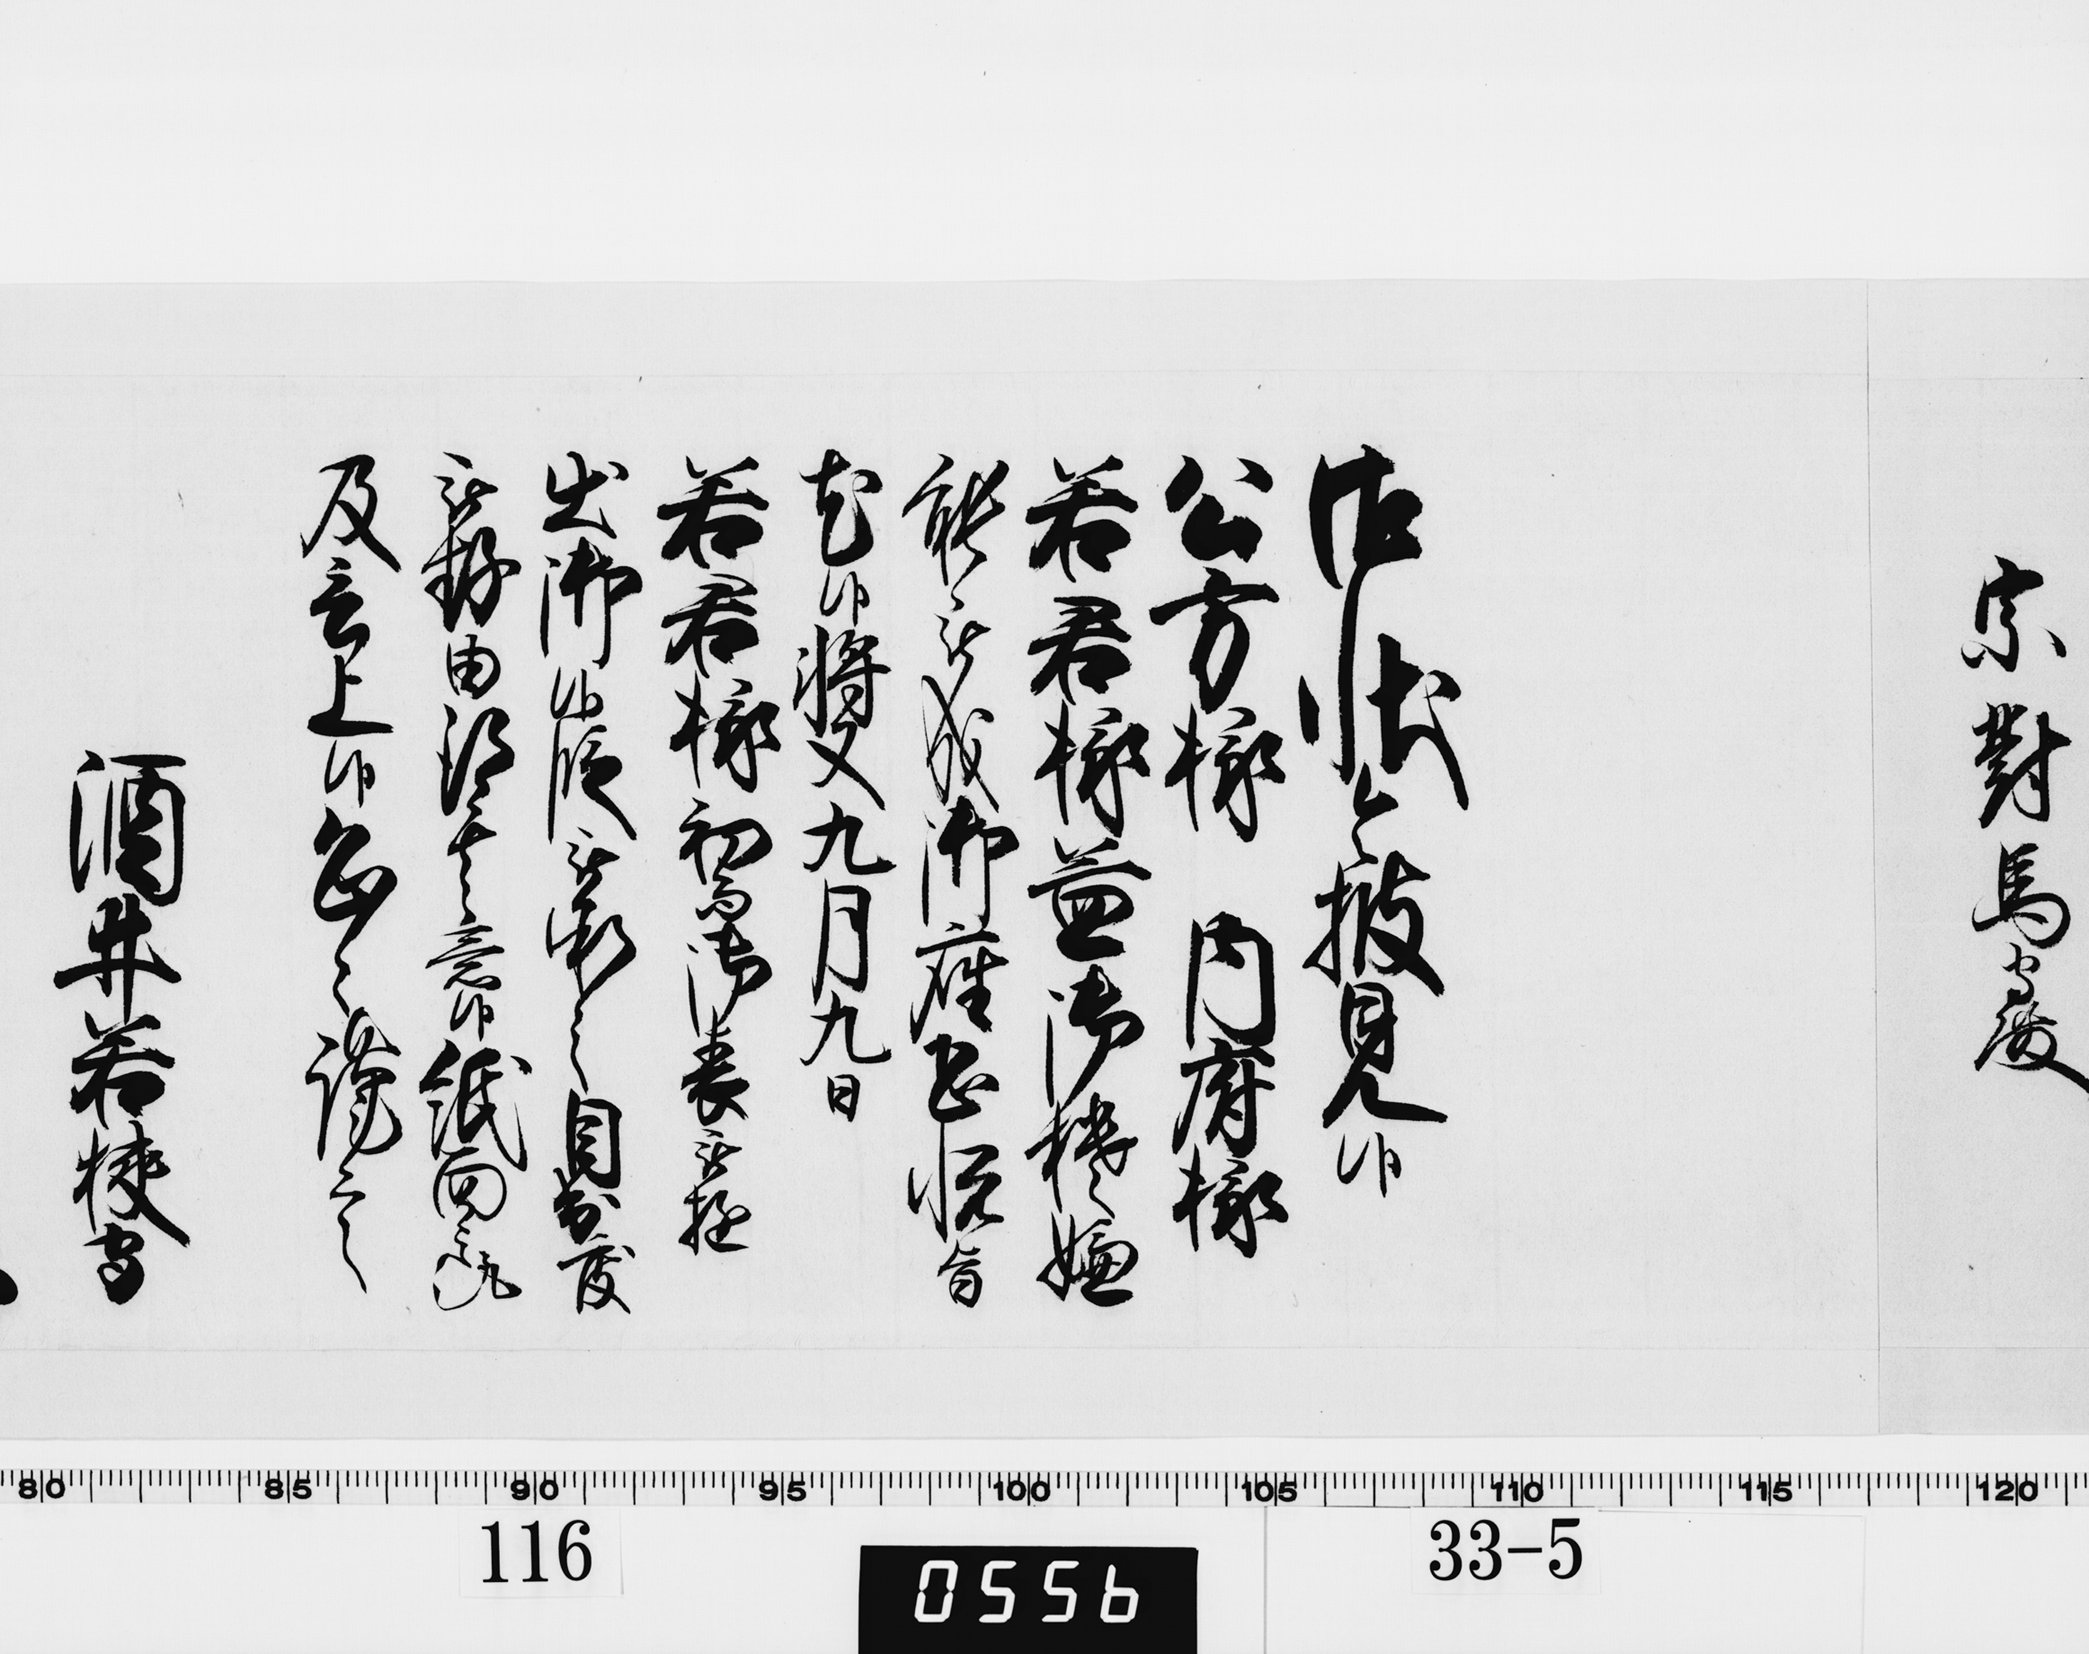 宗對馬守殿
御状令披見候
公方様 内府様
若君様益御機嫌
能被成御座恐悦旨
尤候将又九月九日
若君様初而御表被遊
出御候段被承之目出度
被存由得其意候紙面之趣
及言上候恐々謹言
酒井若狭守
80 85 90 95 100 105 110 115 120
116
0556
33-5